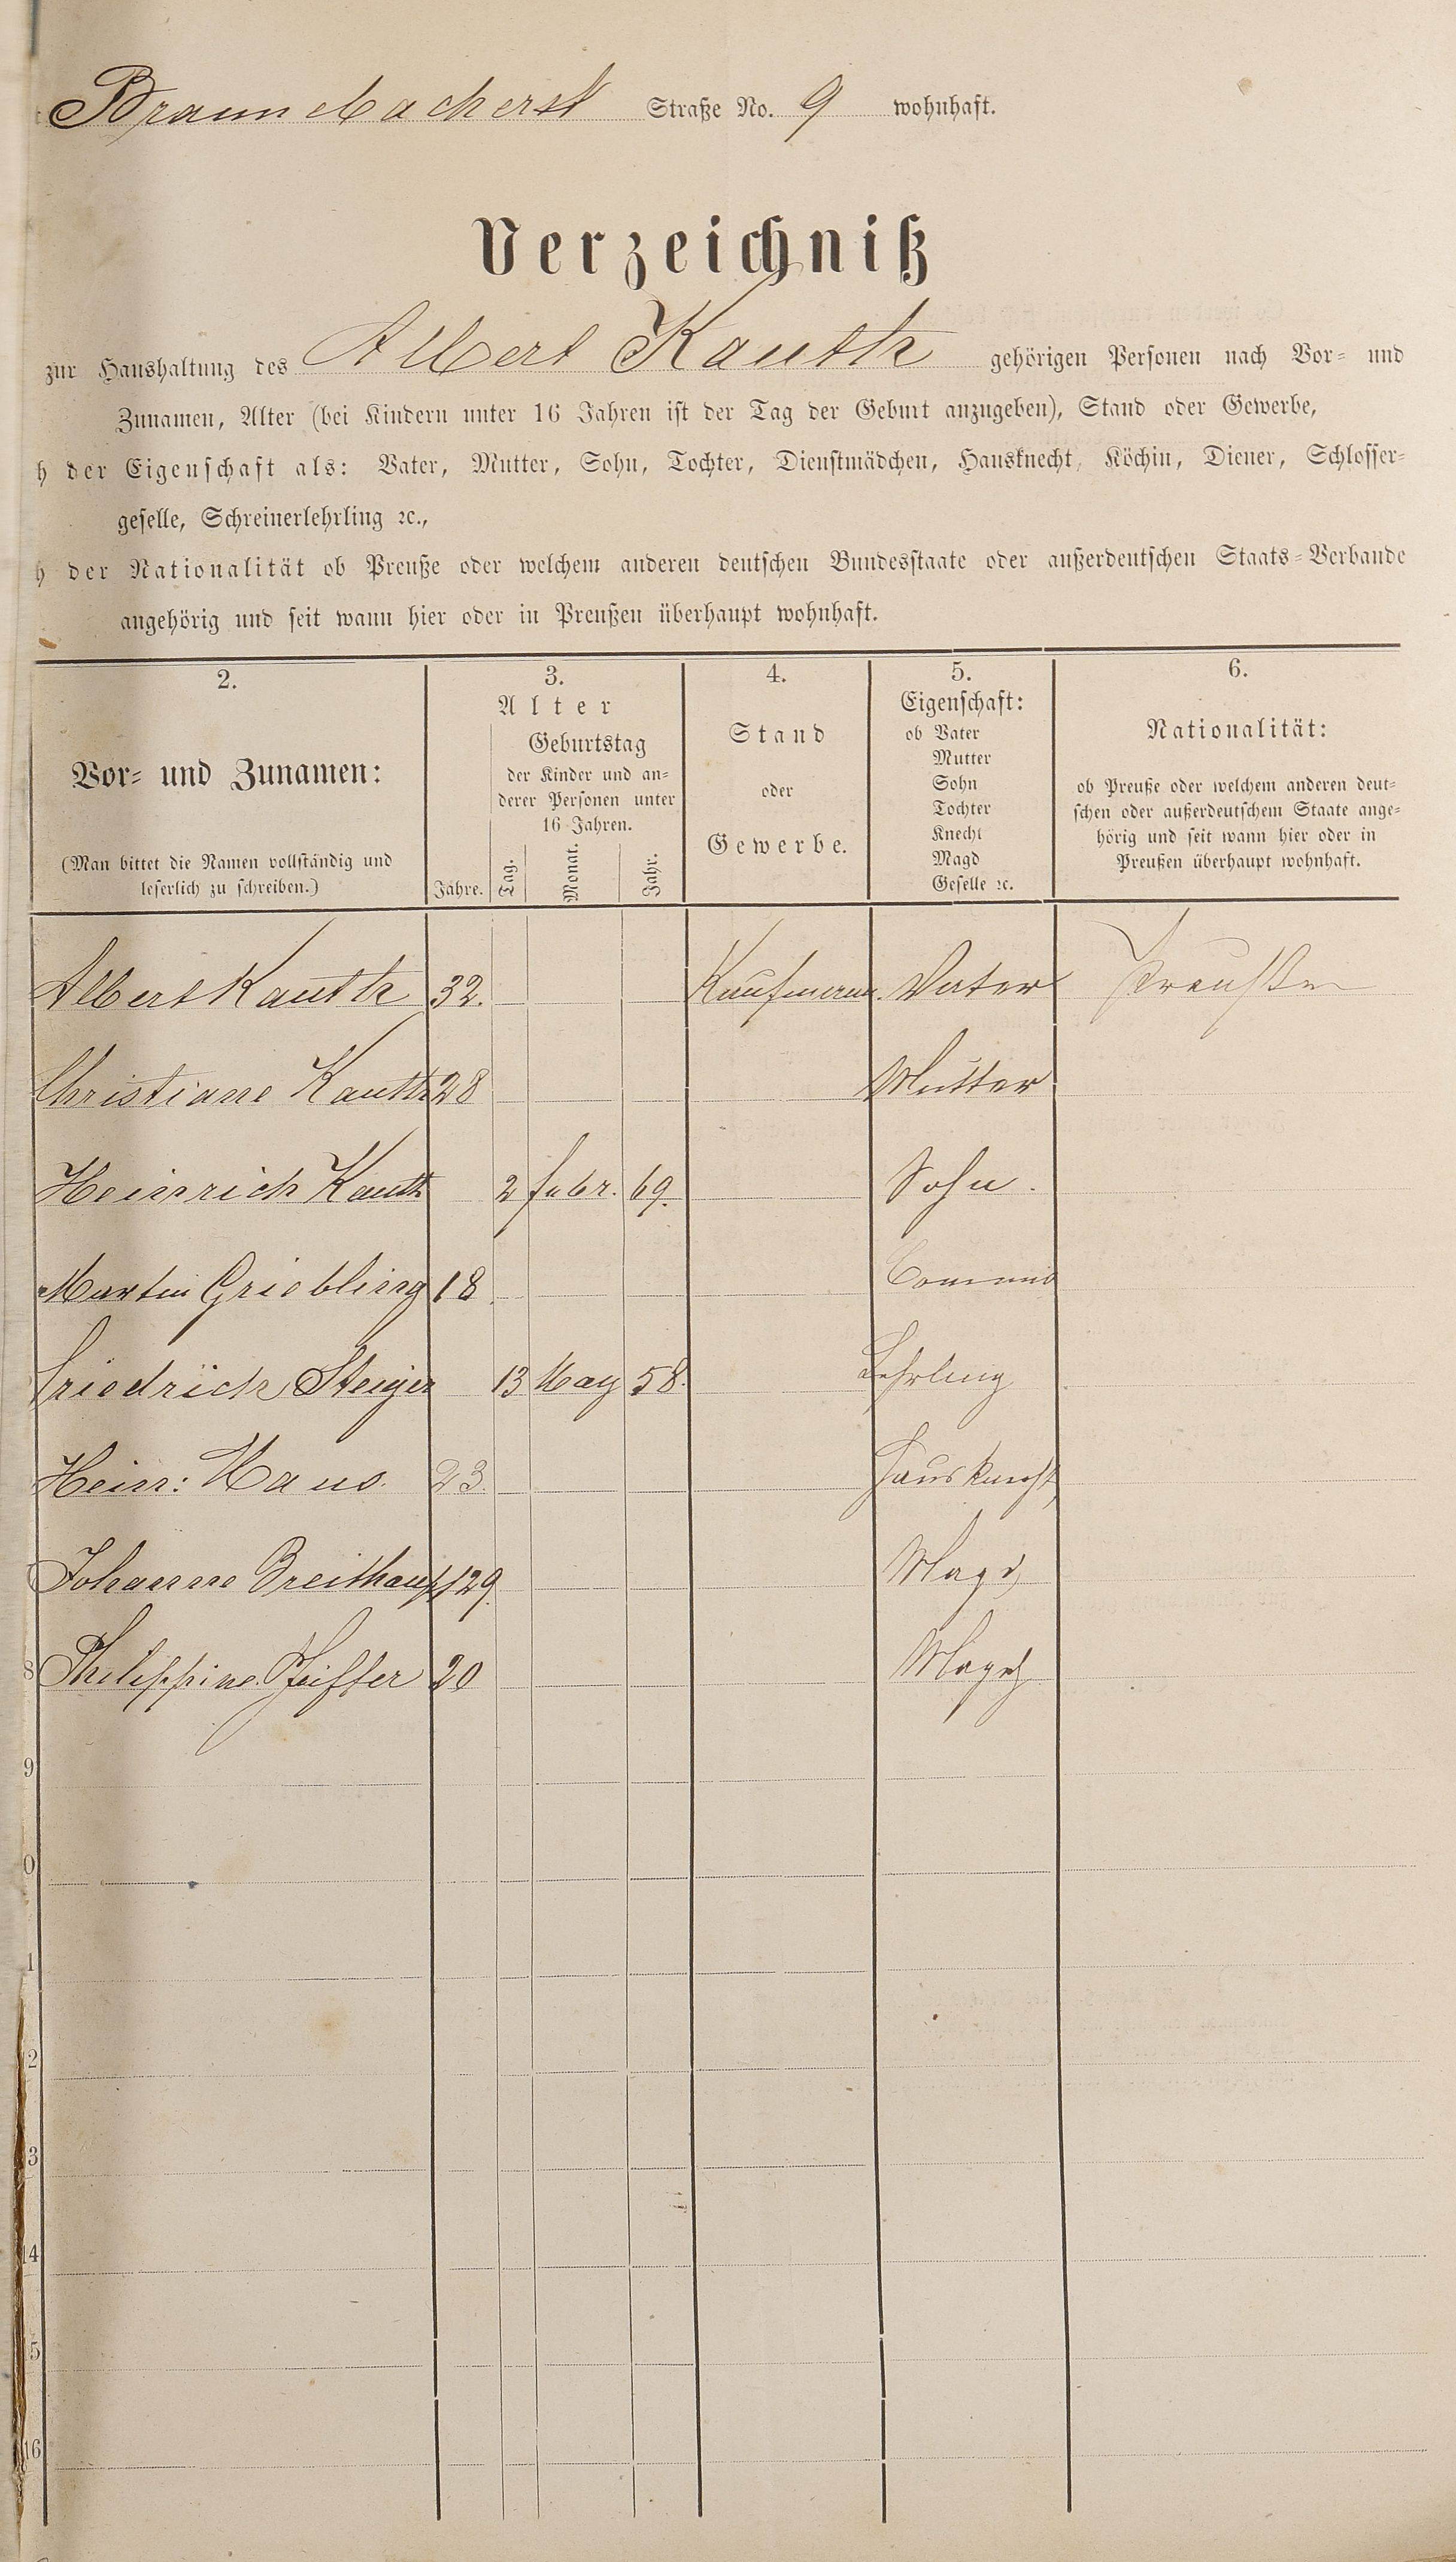 Braunebacherst Straße No. 9 wohnhaft.
Verzeichniß
zur Haushaltung des Albert Kauth gehörigen Personen nach Vor- und
Zunamen, Alter (bei Kindern unter 16 Jahren ist der Tag der Geburt anzugeben), Stand oder Gewerbe,
h der Eigenschaft als: Vater, Mutter, Sohn, Tochter, Dienstmädchen, Hausknecht, Köchin, Diener, Schlosser-
geselle, Schreinerlehrling ꝛc.,
h der Nationalität ob Preuße oder welchem anderen deutschen Bundesstaate oder außerdeutschen Staats-Verbande
angehörig und seit wann hier oder in Preußen überhaupt wohnhaft.
2. 3. 4. 5. 6.
Vor- und Zunamen:
(Man bittet die Namen vollständig und
leserlich zu schreiben.)
Alter
Geburtstag
der Kinder und an-
derer Personen unter
16 Jahren.
Jahre. Tag. Monat. Jahr.
Stand
oder
Gewerbe.
Eigenschaft:
ob Vater
Mutter
Sohn
Tochter
Knecht
Magd
Geselle ꝛc.
Nationalität:
ob Preuße oder welchem anderen deut-
schen oder außerdeutschem Staate ange-
hörig und seit wann hier oder in
Preußen überhaupt wohnhaft.
Albert Kauth 32. Kaufmann. Vater Preußen
Christiane Kauth 28 Mutter
Heinrich Kauth 2 Febr. 69. Sohn.
Martin Griebling 18 Commis
Friedrich Steiger 13 May 58. Lehrling
Heinr: Maus. 23. Hausknecht
Johanne Breithaupt 29. Magd
8 Philippine Pfeiffer 20 Magd
9
0
1
2
3
14
5
16